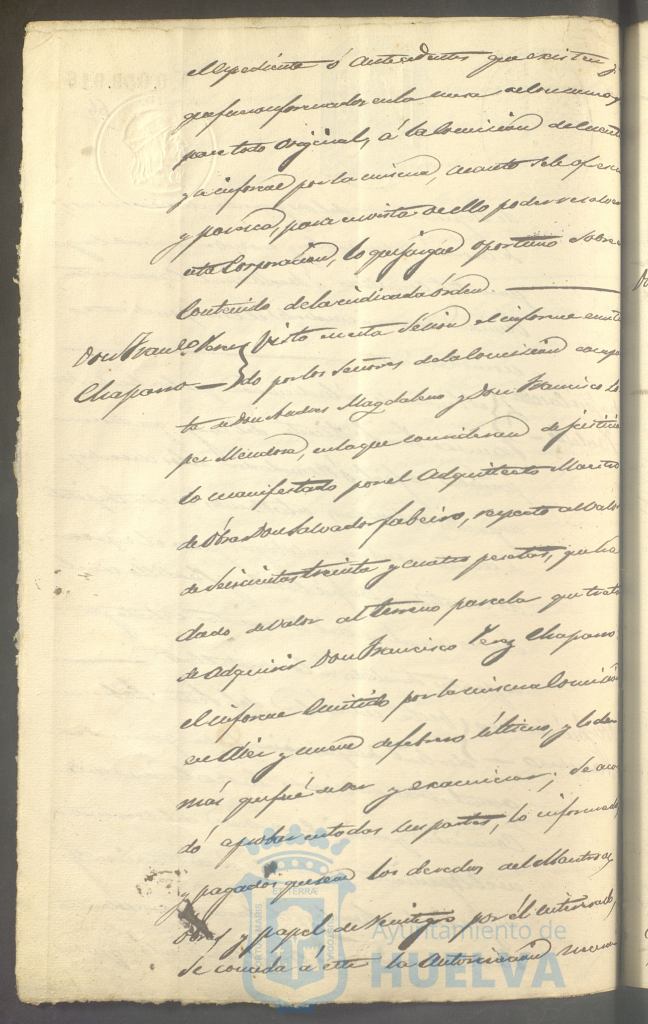 el expediente ó antecedentes que existen y
que fueron formados en la mesa de los mismos
para todo original, á la Comision del ramo
y a informe por la misma, cuanto se le ofrezca
y parezca, para en vista de ello poder resolver
esta Corporacion, lo que juzgue oportuno sobre
contenido de la indicada órden.
Don Franco. Perez
Chaparro
Visto en esta Sesion el informe emiti
do por los Señores de la Comision compues
ta de Don Andres Magdaleno y Don Francisco Lo
pez Mendoza, en la que consideran de justicia
lo manifestado por el Arquitecto Maestro
de Obras Don Salvador, respecto al valor
de Seiscientas treinta y cuatro pesetas, que ha
dado de valor al terreno parcela que trata
de adquirir Don Francisco Perez Chaparro.
el informe emitido por la misma Comision
en diez y nueve de febrero último, y lo de
más que fué de ver y examinar; se acor
dó aprobar en todas sus partes, lo informado
y pagados que sean los derechos del Maestro de
Obras y papel de Reintegro por él interesado,
se conceda á este la Autorizacion
PORTUS MARIS
ET TERRÆ
CUSTODIA
Ayuntamiento de
HUELVA